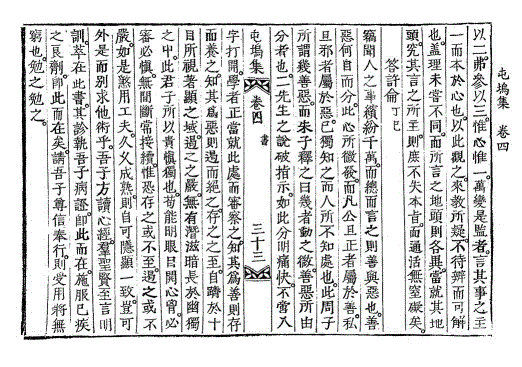 屯塢集 卷四
以二弗參以三惟心惟一萬變是監者言其事之主
一而本於心也以此觀之來教所疑不待辨而可解
也蓋理未嘗不同而所言之地頭則各異當就其地
頭究其言之所主則庶不失本旨而通活無窒礙矣
答許侖 丁巳
竊聞人之事繽紛千萬而總而言之則善與惡也善
惡何自而分此心所微發而凡公且正者屬於善私
且邪者屬於惡己獨知之而人所不知處也此周子
所謂幾善惡而朱子釋之曰幾者動之微善惡所由
分者也二先生之說破指示如此分明痛快不啻八
屯塢集 卷四 書 三十三
字打開學者正當就此處而審察之知其爲善則存
而養之知其爲惡則遏而絶之存之之至自躋於十
目所視著顯之域遏之之嚴無有潛滋暗長於幽獨
之中此君子所以貴愼獨也苟能明眼目開心胷必
審必愼無間斷常接續惟恐存之或不至遏之或不
嚴如是煞用工夫久久成熟則自可隱顯一致豈可
外是而別求他術乎吾子方讀心經羣聖賢至言明
訓萃在此書其診執吾子病證卽此而在施服已疾
之良劑卽此而在矣請吾子尊信奉行則受用將無
窮也勉之勉之